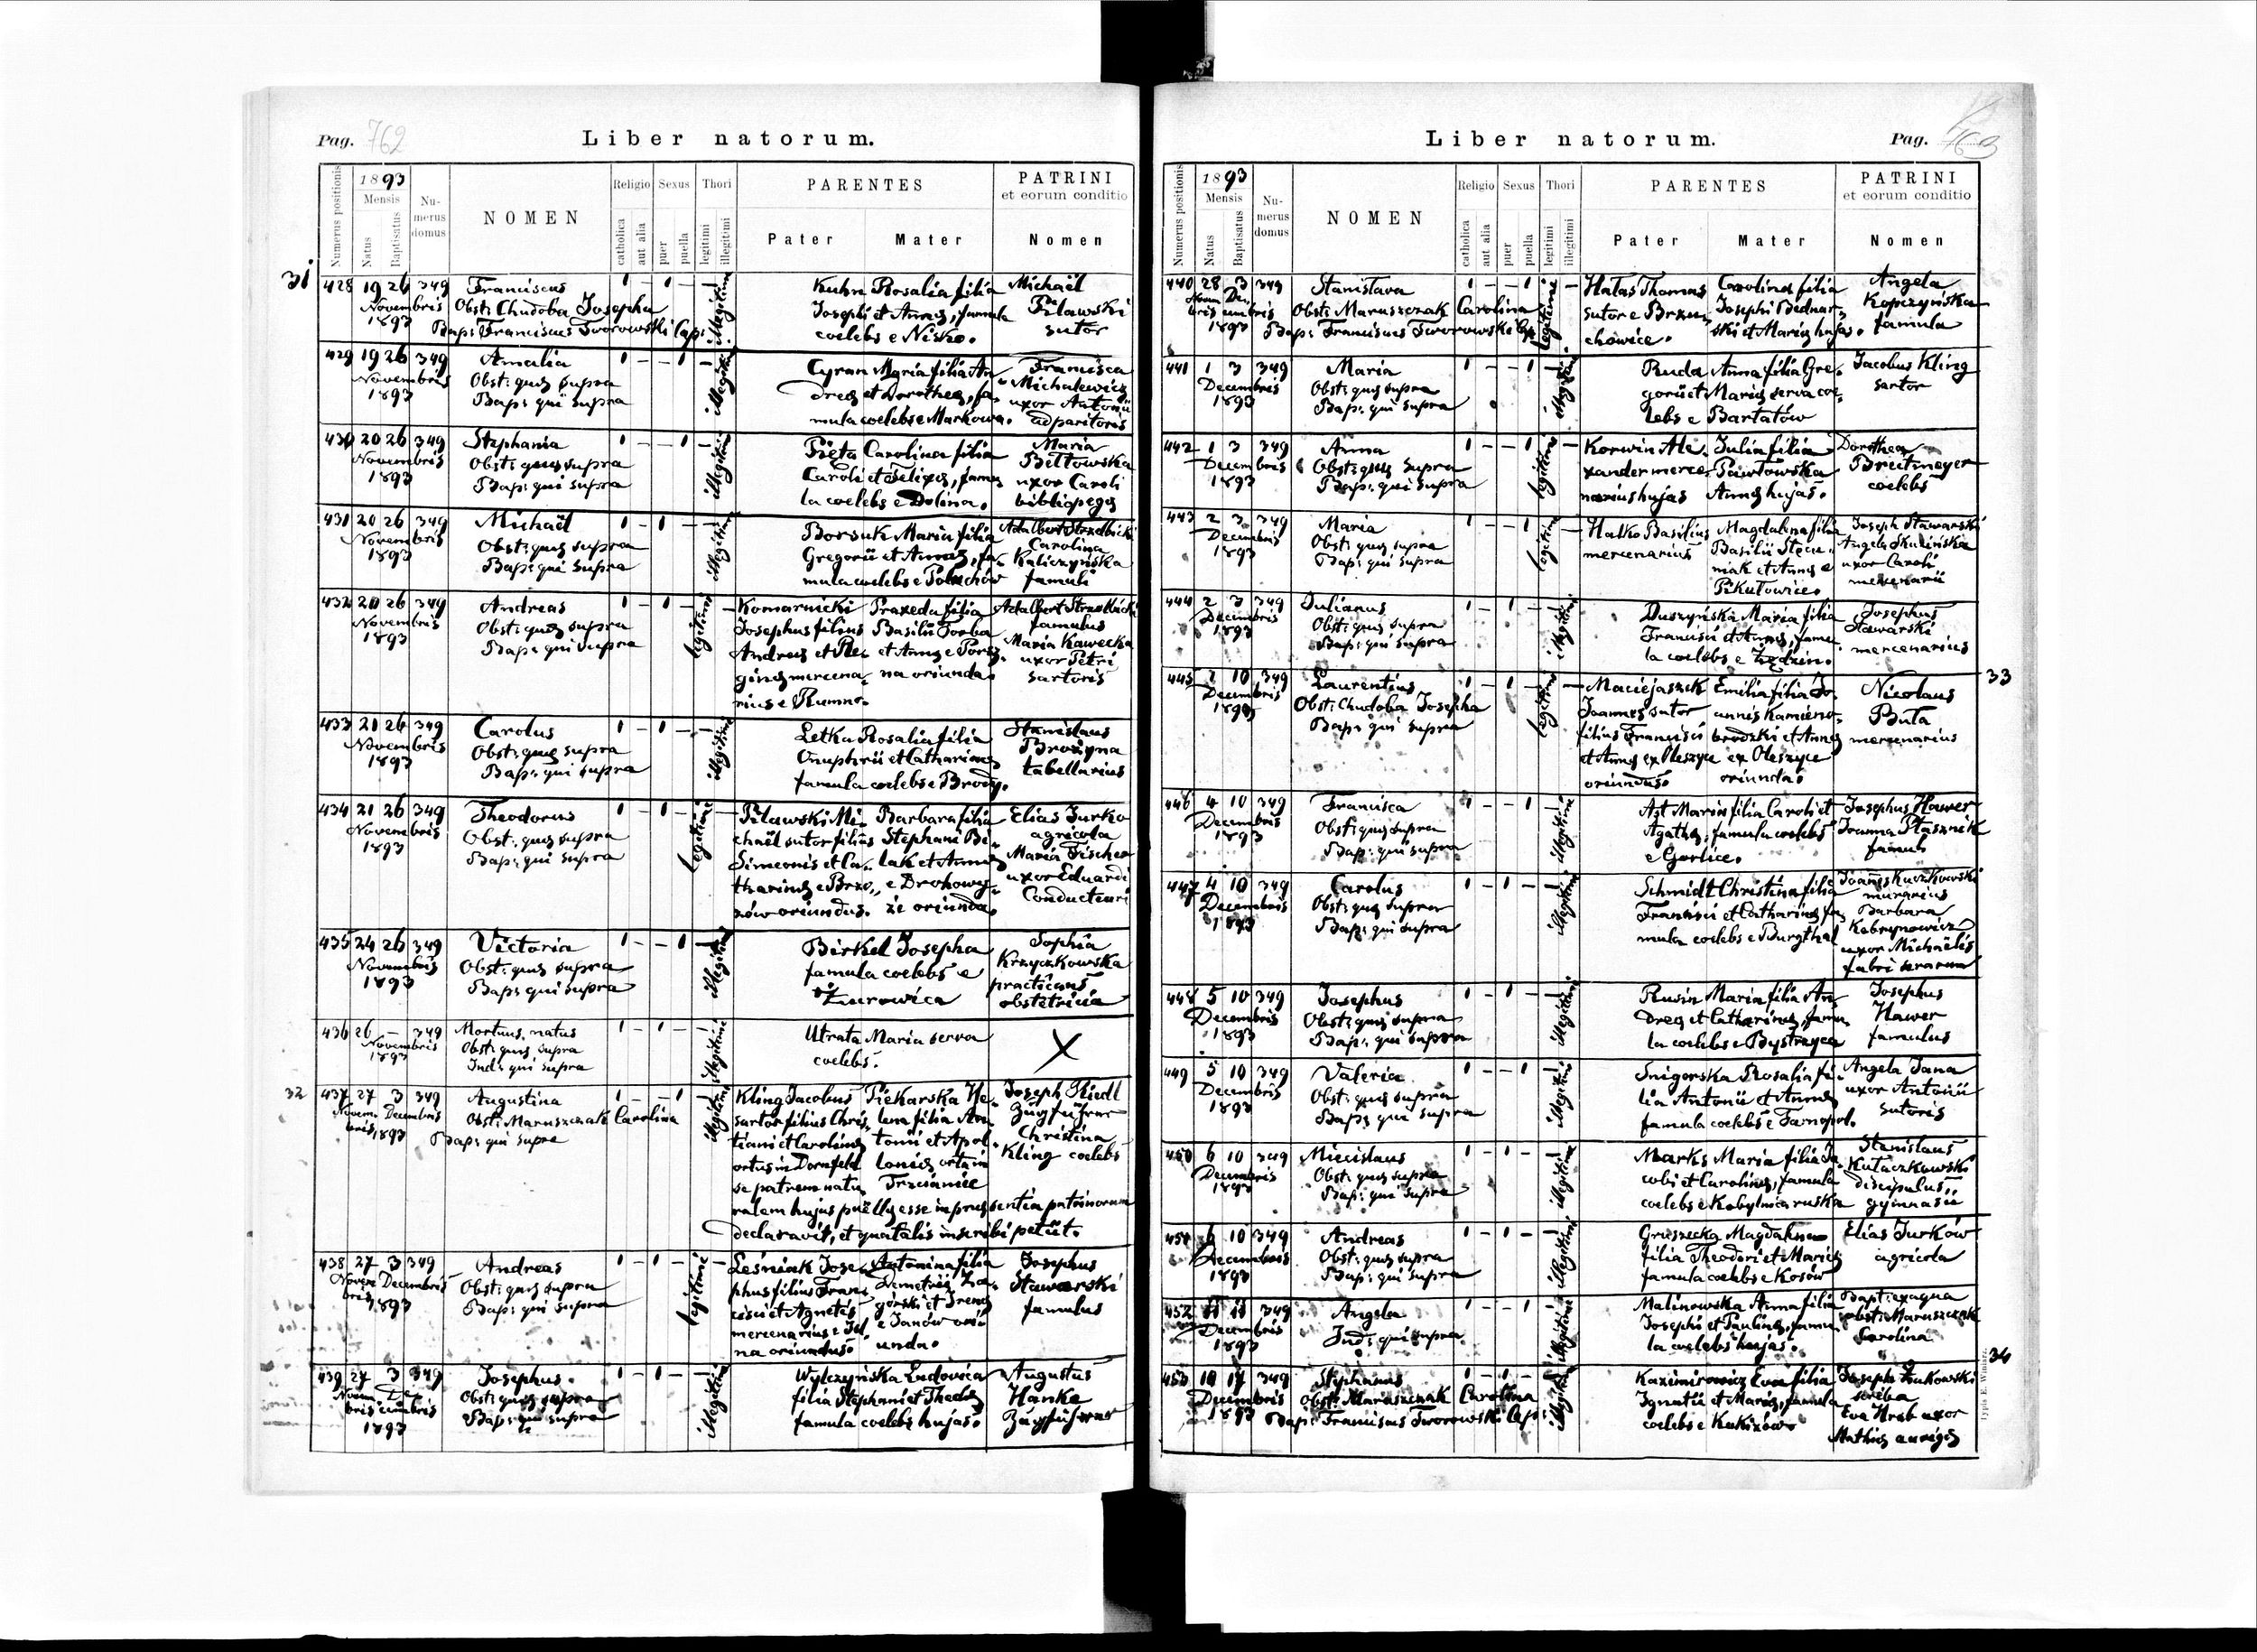 Pag. 762
Liber natorum.
Numerus positionis
1893
Mensis
Natus
Baptisatus
Numerus domus
NOMEN
Religio
catholica
aut alia
Sexus
puer
puella
Thori
legitimi
illegitimi
PARENTES
Pater
Mater
PATRINI
et eorum conditio
Nomen
31
428 19 26 349 Franciscus 1 - 1 - illegitimi Kuhn Rosalia filia Michaël
Novembris Obst: Chudoba Josepha Josephi et Annæ, famula Pilawski
1893 Bap: Franciscus Tworowski Cap: coelebs e Nisko. sutor
429 19 26 349 Amalia 1 - 1 - illegitimi Cyran Maria filia An- Francisca
Novembris Obst: quæ supra dreæ et Dorotheæ, fa- Michalewicz
1893 Bap: qui supra mula coelebs e Markowa. uxor Antonii
adparitoris
430 20 26 349 Stephania 1 - - 1 illegitimi Pięta Carolina filia Maria
Novembris Obst: quæ supra Caroli et Felixæ, famu- Bełtowska
1893 Bap: qui supra la coelebs e Dolina. uxor Caroli
bibliopegæ
431 20 26 349 Michaël 1 - 1 - illegitimi Borsuk Maria filia
Novembris Obst: quæ supra Gregorii et Annæ, fa- Carolina
1893 Bap: qui supra mula coelebs e Kaliczyńska
famuli
432 20 26 349 Andreas 1 - 1 - legitimi Komarnicki Praxeda filia
Novembris Obst: quæ supra Josephus filius Basilii Torba famulus
1893 Bap: qui supra Andreæ et Pela- et Annæ e Porsz- Maria Kawecka
giæ mercena- na oriunda. uxor Petri
rius e Rumno. sartoris
433 21 26 349 Carolus 1 - 1 - illegitimi Letka Rosalia filia Stanislaus
Novembris Obst: quæ supra Onuphrii et Catharinæ Brożyna
1893 Bap: qui supra famula coelebs e Brody. tabellarius
434 21 26 349 Theodorus 1 - 1 - legitimi Pilawski Mi- Barbara filia Elias Jurko
Novembris Obst: quæ supra chaël sutor filius Stephani Bi- agricola
1893 Bap: qui supra Simeonis et Ca- lak et Annæ Maria Fischer
tharinæ e Brzo- e Drohowy- uxor Eduardi
zów oriundus. że oriunda. Conducteuri
435 24 26 349 Victoria 1 - - 1 illegitimi Birkel Josepha Sophia
Novembris Obst: quæ supra famula coelebs e Krzyczkowska
1893 Bap: qui supra Żurowica practicans
obstetricia
436 26 - 349 Mortuus natus 1 - 1 - illegitimi Utrata Maria serva X
Novembris Obst: quæ supra coelebs.
1893 Ind: qui supra
32
437 27 3 349 Augustina 1 - - 1 illegitimi Kling Jacobus Piekarska He- Joseph Riedl
Novem- Decembris Obst: Maruszczak Carolina sartor filius Chris- lena filia An- Zugführer
bris 1893 Bap: qui supra tiani et Carolinæ tonii et Apol- Christina
ortus in Dornfeld loniæ orta in Kling coelebs
se patrem natu- Trzcianiec
ralem hujus puellæ esse in præsentia patrinorum
declaravit, et qua talis inscribi petiit.
438 27 3 349 Andreas 1 - 1 - legitimi Leśniak Jose- Antonina filia Josephus
Novem- Decembris Obst: quæ supra phus filius Fran- Demetrii Za- Stawarski
bris 1893 Bap: qui supra cisci et Agnetis górski et Irenæ famulus
mercenarius e e Janów ori-
na oriundus. unda.
439 27 3 349 Josephus. 1 - 1 - illegitimi Wylczyńska Ludovica Augustus
Novem- De- Obst: quæ supra filia Stephani et Theclæ Hanke
bris cembris Bap: qui supra famula coelebs hujas. Zugführer
1893
Liber natorum.
Pag. 763
Numerus positionis
1893
Mensis
Natus
Baptisatus
Numerus domus
NOMEN
Religio
catholica
aut alia
Sexus
puer
puella
Thori
legitimi
illegitimi
PARENTES
Pater
Mater
PATRINI
et eorum conditio
Nomen
440 28 3 349 Stanislava 1 - - 1 legitimi Hałas Thomas Carolina filia Angela
Novem- De- Obst: Maruszczak Carolina sutor e Brzu- Josephi Bednar- Kopczyńska
bris cembris Bap: Franciscus Tworowski Cap: chowice. ski et Mariæ hujas. famula
1893
441 1 3 349 Maria 1 - - 1 illegitimi Ruda Anna filia Gre- Jacobus Kling
Decembris Obst: quæ supra gorii et Mariæ serva coe- sartor
1893 Bap: qui supra lebs e Bartatów
442 1 3 349 Anna 1 - - 1 legitimi Korwin Ale- Julia filia Dorothea
Decembris Obst: quæ supra xander merce- Pawłowska Breitmeyer
1893 Bap: qui supra narius hujas Annæ hujas. coelebs
443 2 3 349 Maria 1 - - 1 legitimi Halko Basilius Magdalena filia Joseph Stawarski
Decembris Obst: quæ supra mercenarius Basilii Angela Skulińska
1893 Bap: qui supra niak et Annæ e uxor Caroli
Pikułowice. mercenarii
444 2 3 349 Julianus 1 - 1 - illegitimi Duszyńska Maria filia Josephus
Decembris Obst: quæ supra Francisci et Annæ, famu- Stawarski
1893 Bap: qui supra la coelebs e mercenarius
33
445 2 10 349 Laurentius 1 - 1 - legitimi Maciejaszek Emilia filia Jo- Nicolaus
Decembris Obst: Chudoba Josepha Joannes sutor annis Kamieno- Buta
1893 Bap: qui supra filius Francisci brodzki et Annæ mercenarius
et Annæ ex Oleszyce ex Oleszyce
oriundus. oriunda.
446 4 10 349 Francisca 1 - - 1 illegitimi Maria filia Caroli et Josephus Hawer
Decembris Obst: quæ supra Agathæ, famula coelebs Joanna Ptasznik
1893 Bap: qui supra e Gorlice. famuli
447 4 10 349 Carolus 1 - 1 - illegitimi Schmidt Christina filia Joannes Kuczkowski
Decembris Obst: quæ supra Francisci et Catharinæ fa- murarius
1893 Bap: qui supra mula coelebs e Burgthal Barbara
Kobrynowicz
uxor Michaëlis
fabri
448 5 10 349 Josephus 1 - 1 - illegitimi Rusin Maria filia An- Josephus
Decembris Obst: quæ supra dreæ et Catharinæ, famu- Hawer
1893 Bap: qui supra la coelebs e Bystrzyca famulus
449 5 10 349 Valeria 1 - - 1 illegitimi Śnigorska Rosalia fi- Angela Jana
Decembris Obst: quæ supra lia Antonii et Annæ uxor Antonii
1893 Bap: qui supra famula coelebs e Tarnopol. sutoris
450 6 10 349 Miecislaus 1 - 1 - illegitimi Marks Maria filia Ja- Stanislaus
Decembris Obst: quæ supra cobi et Carolinæ, famula Kułaczkowski
1893 Bap: qui supra coelebs e Kobylnica ruska discipulus
gymnasii
451 6 10 349 Andreas 1 - 1 - illegitimi Gruszecka Magdalena Elias Jurków
Decembris Obst: quæ supra filia Theodori et Mariæ agricola
1893 Bap: qui supra famula coelebs e Kosów
452 11 11 349 Angela 1 - - 1 illegitimi Malinowska Anna filia Bapt: ex aqua
Decembris Ind: qui supra Josephi et Paulinæ, famu- obst: Maruszczak
1893 la coelebs hujas. Carolina
34
453 10 17 349 Stephanus 1 - 1 - illegitimi Kazimirowicz Eva filia Joseph Żukowski
Decembris Obst: Maruszczak Carolina Ignatii et Mariæ, famula scriba
1893 Bap: Franciscus Tworowski Cap: coelebs e Kukizów. Eva Hrab uxor
Mathiæ aurigæ